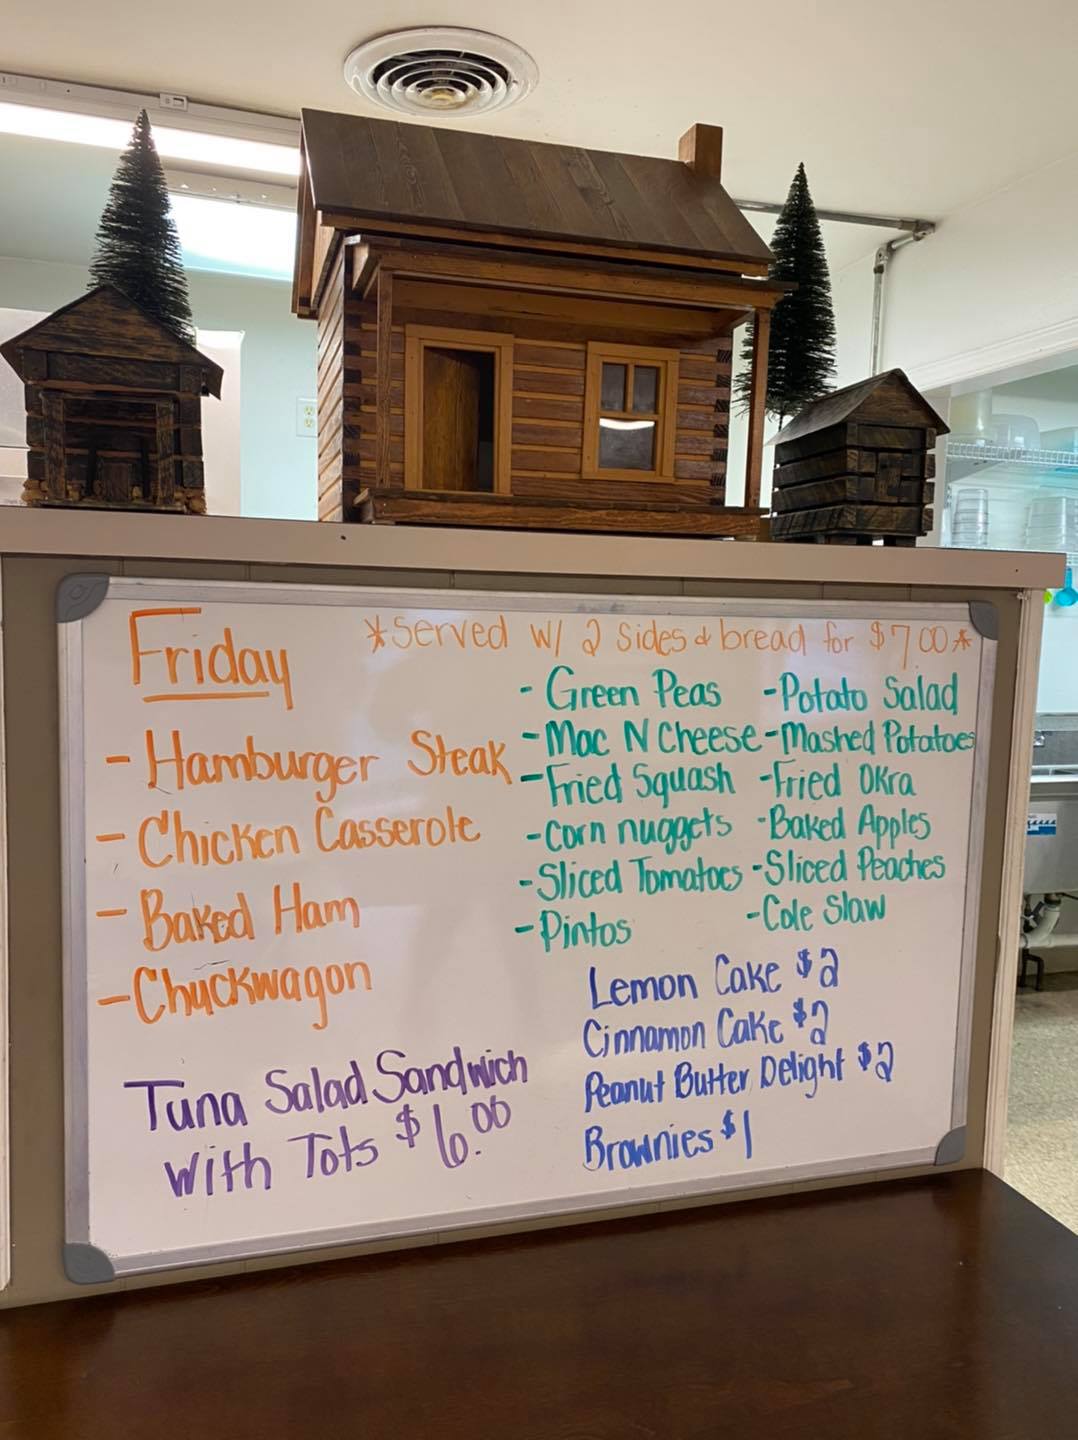 Friday
*Served w/ 2 sides & bread for $7.00*
- Hamburger Steak
- Chicken Casserole
- Baked Ham
- Chuckwagon
- Green Peas
- Mac N Cheese
- Fried Squash
- Corn nuggets
- Sliced Tomatoes
- Pintos
- Potato Salad
- Mashed Potatoes
- Fried Okra
- Baked Apples
- Sliced Peaches
- Cole Slaw
Tuna Salad Sandwich
With Tots $6.00
Lemon Cake $2
Cinnamon Cake $2
Peanut Butter Delight $2
Brownies $1